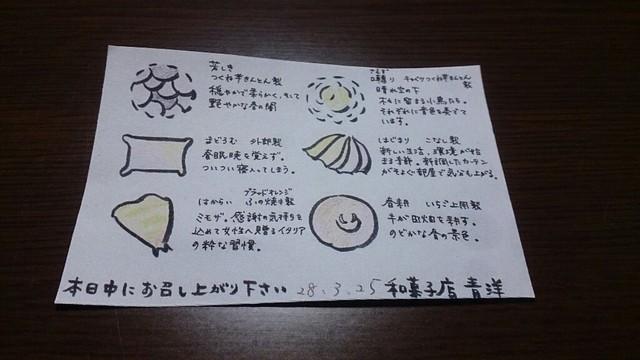 芳しき
つくね芋きんとん製
穏やかで柔らかく、そして
艶やかな春の闇
囀り つくね芋きんとん製
さえずり
晴れた空の下
木々に留まる小鳥たち。
それぞれに音色を奏でて
います。
まどろむ 外郎製
春眠暁を覚えず。
ついつい寝入ってしまう。
はじまり こなし製
新しい生活、環境が始
まる季節。新調したカーテン
がそよぐ部屋で気分も上がる。
ブラッドオレンジ
はからい ふの焼き製
ミモザ。感謝の気持ちを
込めて女性へ贈るイタリア
の粋な習慣。
春耕 いちご上用製
牛が田畑を耕す。
のどかな春の景色。
本日中にお召し上がり下さい 28.3.25 和菓子店 青洋